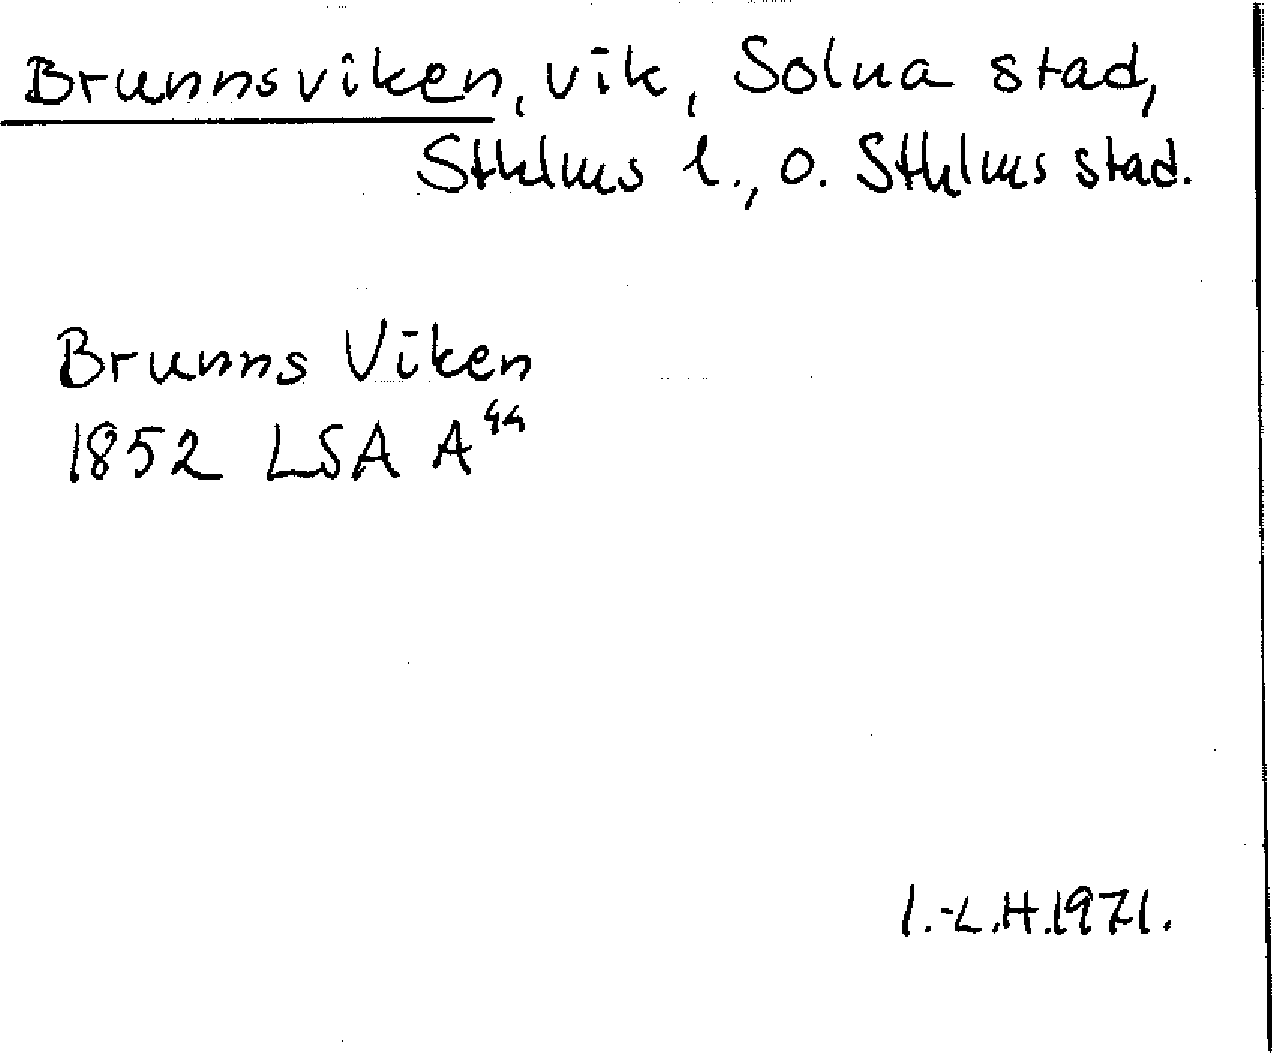 Brunnsviken, vik, Solna stad,
Sthlms l., o. Sthlms stad.
Brunns Viken
1852 LSA A⁴⁴
I.-L.H.1971.